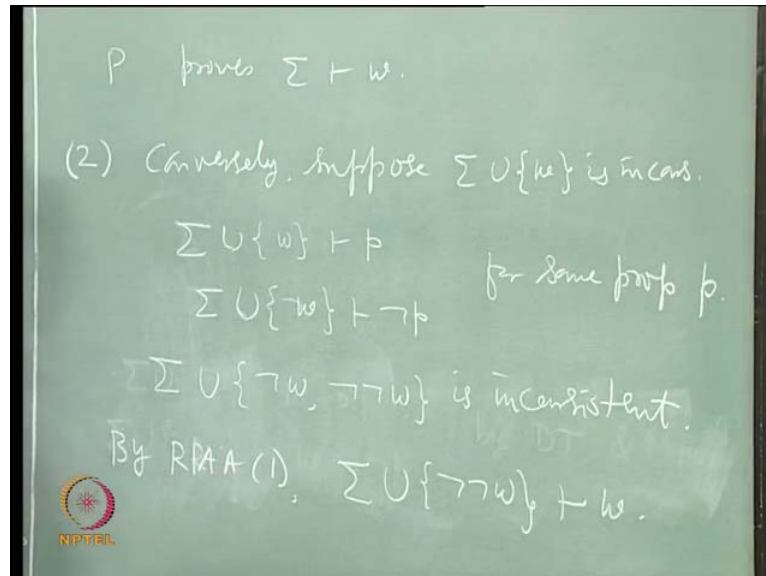 P proves Σ ⊢ w.
(2) Conversely, suppose Σ ∪ {w} is incons.
Σ ∪ {w} ⊢ p
for some prop p.
Σ ∪ {¬w} ⊢ ¬p
Σ ∪ {¬w, ¬¬w} is inconsistent.
By RPAA(1), Σ ∪ {¬¬w} ⊢ w.
NPTEL